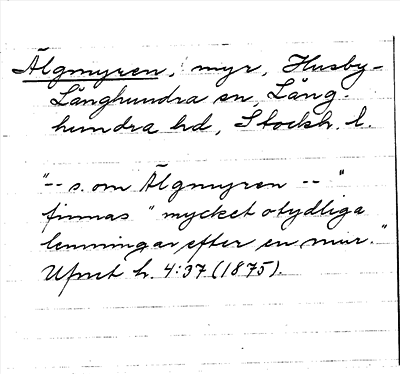 Älgmyren, myr, Husby-
Långhundra sn, Lång-
hundra hd, Stockh. l.
"-- s. om Älgmyren -- "
finnas "mycket otydliga
lemningar efter en mur."
Upmt h. 4:37 (1875).